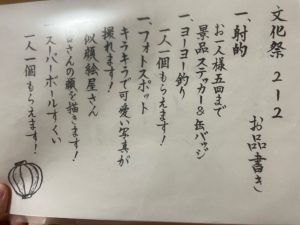 文化祭 2-2
お品書き
一、射的
お一人様五回まで
景品 ステッカー&缶バッジ
一、ヨーヨー釣り
一人一個もらえます!
一、フォトスポット
キラキラで可愛い写真が
撮れます!
似顔絵屋さん
さんの顔を描きます!
スーパーボールすくい
一人一個もらえます!